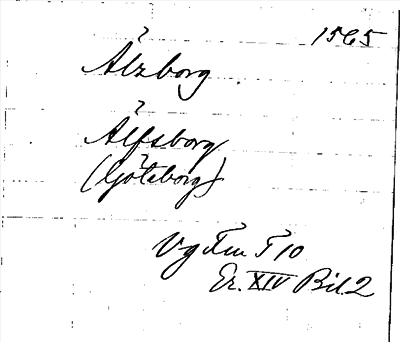 1565
Älzborg
Älfsborg
(Göteborg)
Vg Fm T 10
Er. XIV Bil. 2